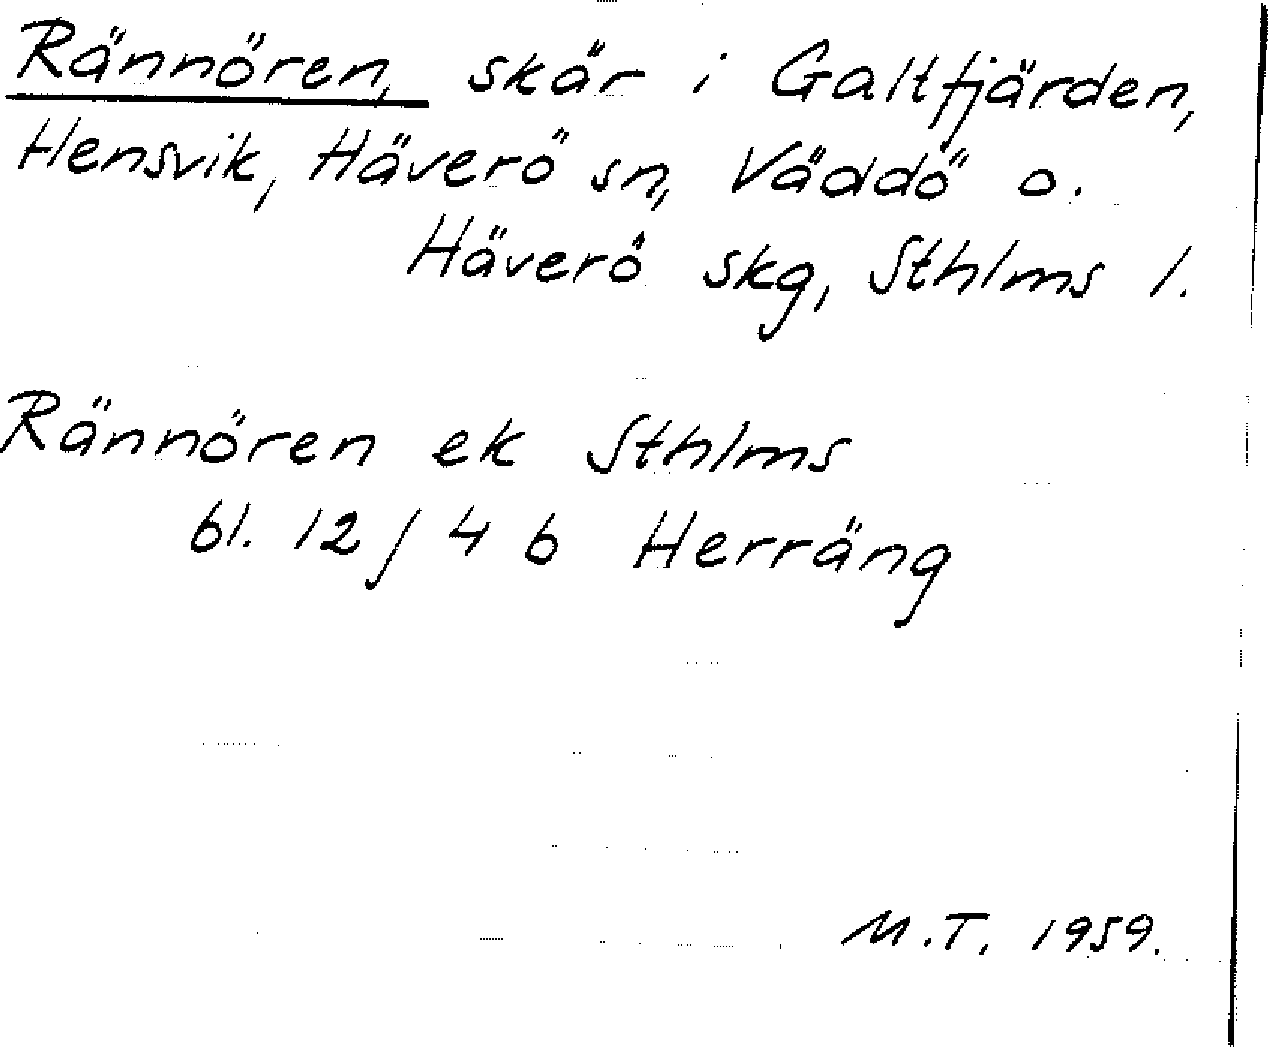 Rännören, skär i Galtfjärden,
Hensvik, Häverö sn, Väddö o.
Häverö skg, Sthlms l.
Rännören ek Sthlms
bl. 12 J 4 b Herräng
M.T. 1959.